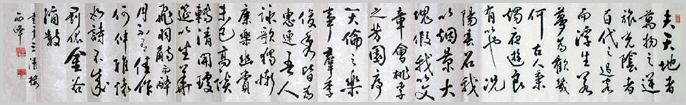 夫天地者
萬物之逆
旅光陰者
百代之過客
而浮生若
夢為歡幾
何古人秉
燭夜遊良
有以也況
陽春召我
以煙景大
塊假我以文
章會桃李
之芳園序
天倫之樂
事群季
俊秀皆為
惠連吾人
詠歌獨慚
康樂幽賞
未已高談
轉清開瓊
筵以坐花
飛羽觴而醉
月不有佳作
何伸雅懷
如詩不成
罰依金谷
酒數